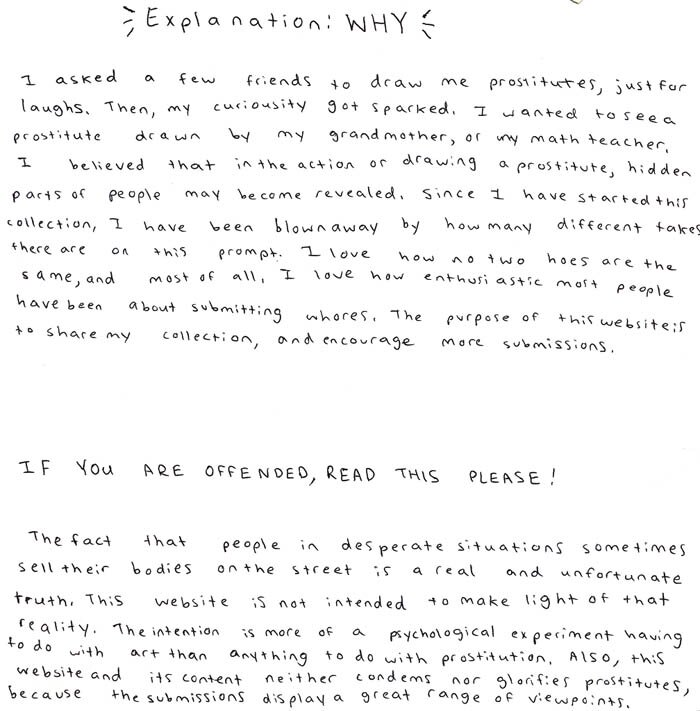 Explanation: WHY
I asked a few friends to draw me prostitutes, just for
laughs. Then, my curiousity got sparked. I wanted to see a
prostitute drawn by my grandmother, or my math teacher.
I believed that in the action or drawing a prostitute, hidden
parts of people may become revealed. Since I have started this
collection, I have been blown away by how many different takes
there are on this prompt. I love how no two hoes are the
same, and most of all, I love how enthusiastic most people
have been about submitting whores. The purpose of this website is
to share my collection, and encourage more submissions.
IF YOU ARE OFFENDED, READ THIS PLEASE!
The fact that people in desperate situations sometimes
sell their bodies on the street is a real and unfortunate
truth. This website is not intended to make light of that
reality. The intention is more of a psychological experiment having
to do with art than anything to do with prostitution. Also, this
website and its content neither condems nor glorifies prostitutes,
because the submissions display a great range of viewpoints.